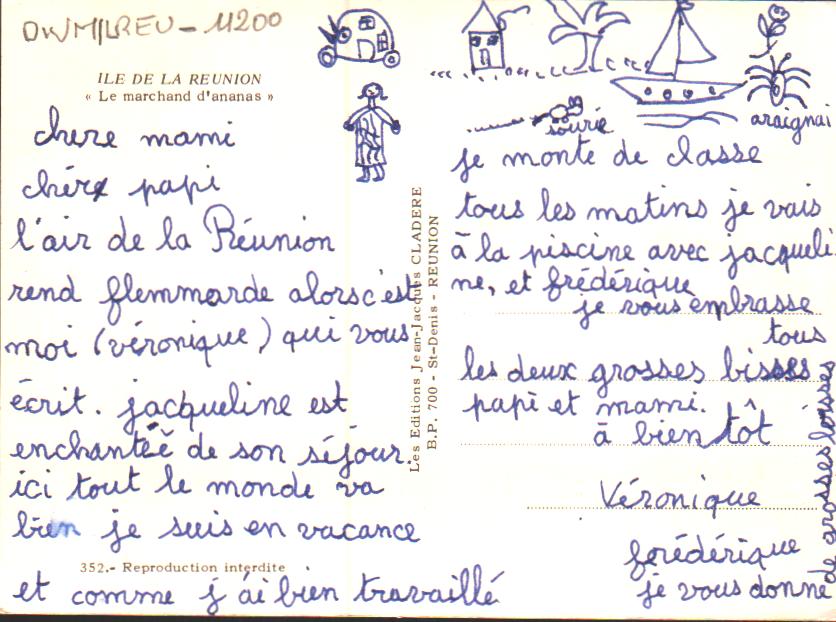 DWM/LREU-11200
ILE DE LA REUNION
« Le marchand d'ananas »
chere mami
chére papi
l'air de la Réunion
rend flemmarde alors c'est
moi (véronique) qui vous
écrit. jacqueline est
enchantéé de son séjour.
ici tout le monde va
bien je suis en vacance
352.- Reproduction interdite
et comme j'ai bien travaillé
Les Editions Jean-Jacques CLADERE
B.P. 700 - St-Denis - REUNION
sourie
araignai
je monte de classe
tous les matins je vais
à la piscine avec jacqueli
ne, et frédérique
je vous embrasse
tous
les deux grosses bisses
papi et mami.
à bien tôt
Véronique
frédérique
je vous donne
de grosses bisses